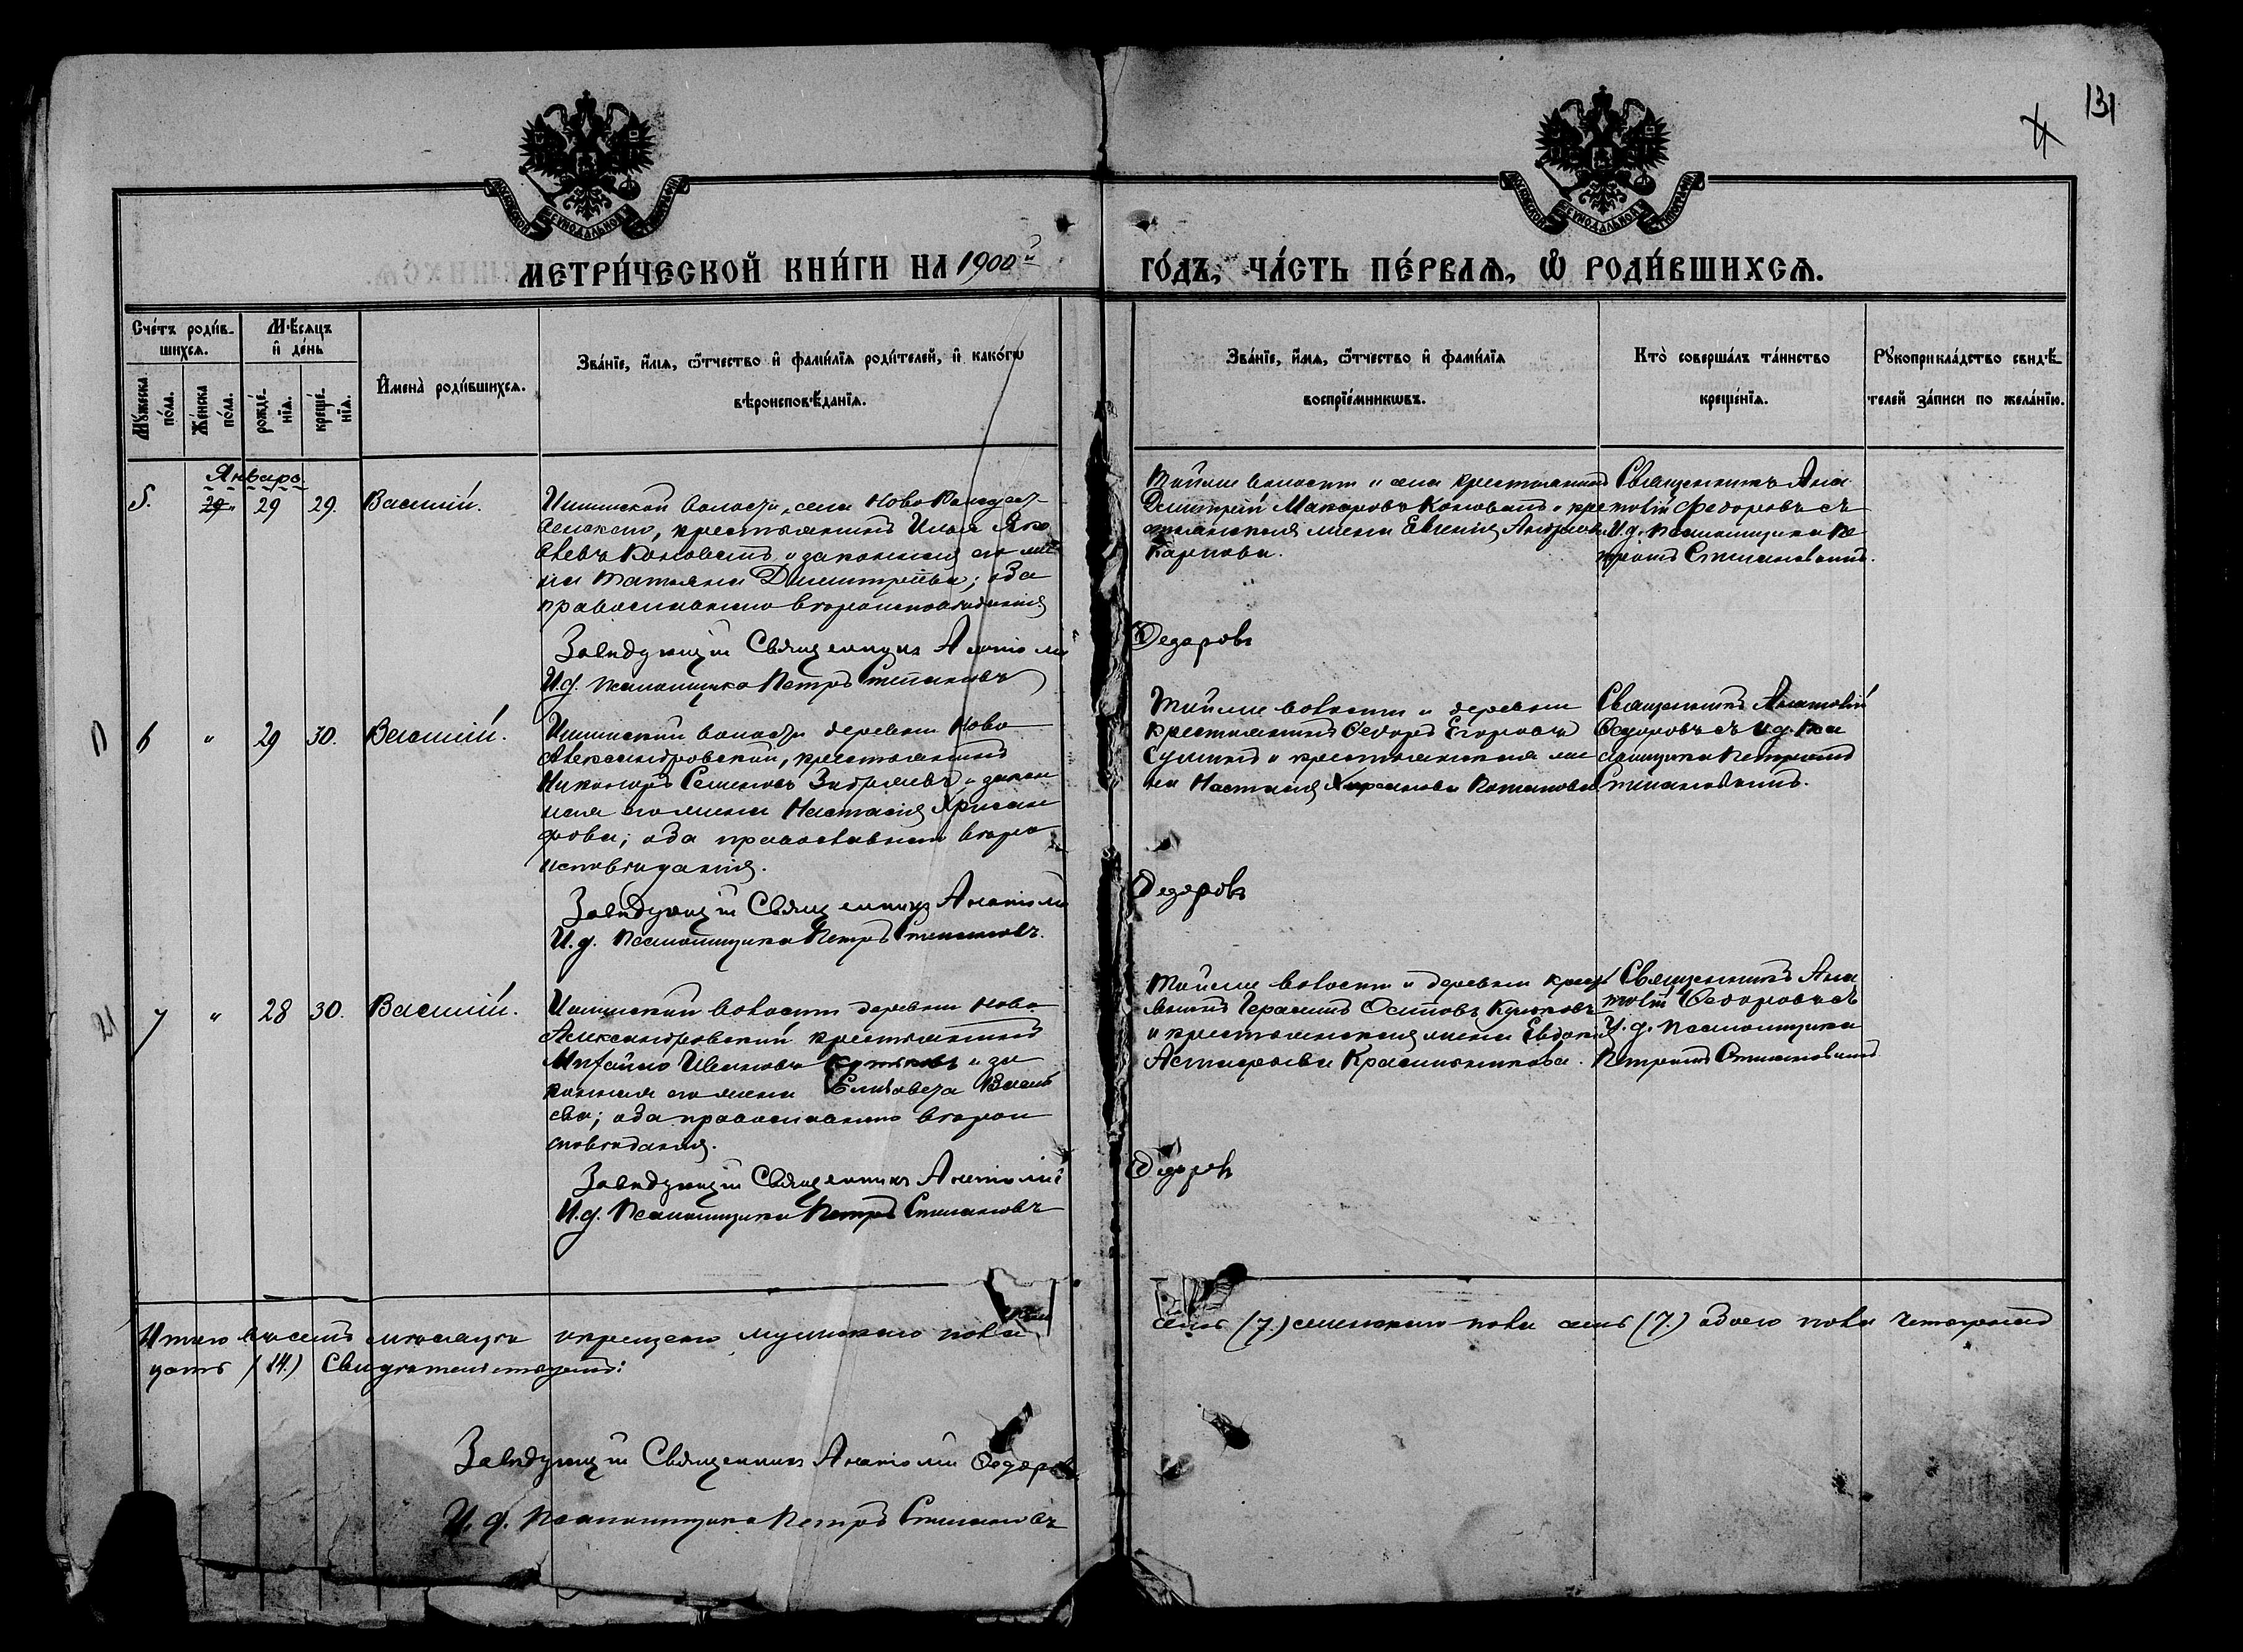 131
4
МОСКОВСКОЙ СѴНОДАЛЬНОЙ ТИПОГРАФІИ
МОСКОВСКОЙ СѴНОДАЛЬНОЙ ТИПОГРАФІИ
МЕТРИ́ЧЕСКОЙ КНИ́ГИ НА 1900й ГО́ДЪ, ЧА́СТЬ ПЕ́РВАѦ, Ѽ РОДИ́ВШИХСѦ.
Сче́тъ роди́в-
шихсѧ.
Мꙋ́жеска по́ла.
Же́нска по́ла.
Мѣ́сѧцъ и҆ де́нь
рожде́-нїѧ.
креще́-нїѧ.
И҆мена̀ роди́вшихсѧ.
Зва́нїе, и҆́мѧ, ѻ҆́тчество и҆ фами́лїѧ роди́телей, и҆ како́гѡ
вѣроисповѣ́данїѧ.
Зва́нїе, и҆́мѧ, ѻ҆́тчество и҆ фами́лїѧ
воспрїе́мникѡвъ.
Кто̀ соверша́лъ та́инство
креще́нїѧ.
Рꙋкоприкла́дство свидѣ́-
телей за́писи по жела́нїю.
Январь
5. 29 29. Василій.
волости, села Ново
крестьянинъ Илья Яко
влевъ и законная его же
на Татьяна Димитріева; оба
православнаго вѣроисповѣданія
Завѣдующій Священникъ Анатолій Федоровъ
И.д. Псаломщика Петръ Степановъ
Той же волости и села крестьянинъ
Димитрій Макаровъ и кре
стьянская жена Евгенія Андреева
Карпова.
Священникъ Ана
толій Федоровъ съ
И.д. Псаломщика Пе
тромъ Степановымъ.
6 " 29 30. Василій.
волости деревни Ново
Александровской, крестьянинъ
Никаноръ Семеновъ и закон
ная его жена Настасія Хрисан
фова; оба православнаго вѣро
исповѣданія.
Завѣдующій Священникъ Анатолій Федоровъ
И.д. Псаломщика Петръ Степановъ.
Той же волости и деревни
крестьянинъ Ѳедоръ Егоровъ
и крестьянская же
на Настасія
Священникъ Анатолій
Ѳедоровъ съ И.д. Пса
ломщика Петромъ
Степановымъ.
21 7 " 28 30. Василій.
волости деревни Ново-
Александровской крестьянинъ
Михаилъ Ивановъ и за
конная его жена Елизавета Василь
ева; оба православнаго вѣрои
сповѣданія.
Завѣдующій Священникъ Анатолій Ѳедоровъ
И.д. Псаломщика Петръ Степановъ
Той же волости и деревни крест
янинъ Герасимъ Осиповъ
и крестьянская жена Евдокія
Астафьева Красильникова.
Священникъ Ана
толій Ѳедоровъ съ
И.д. Псаломщика
Петромъ Степановымъ
Итого въ семъ мѣсяцѣ окрещено мужескаго пола семь (7.) женскаго пола семь (7.) обоего пола четырнад
цать (14.) Свидѣтельствуемъ:
Завѣдующій Священникъ Анатолій Федоровъ
И.д. Псаломщика Петръ Степановъ